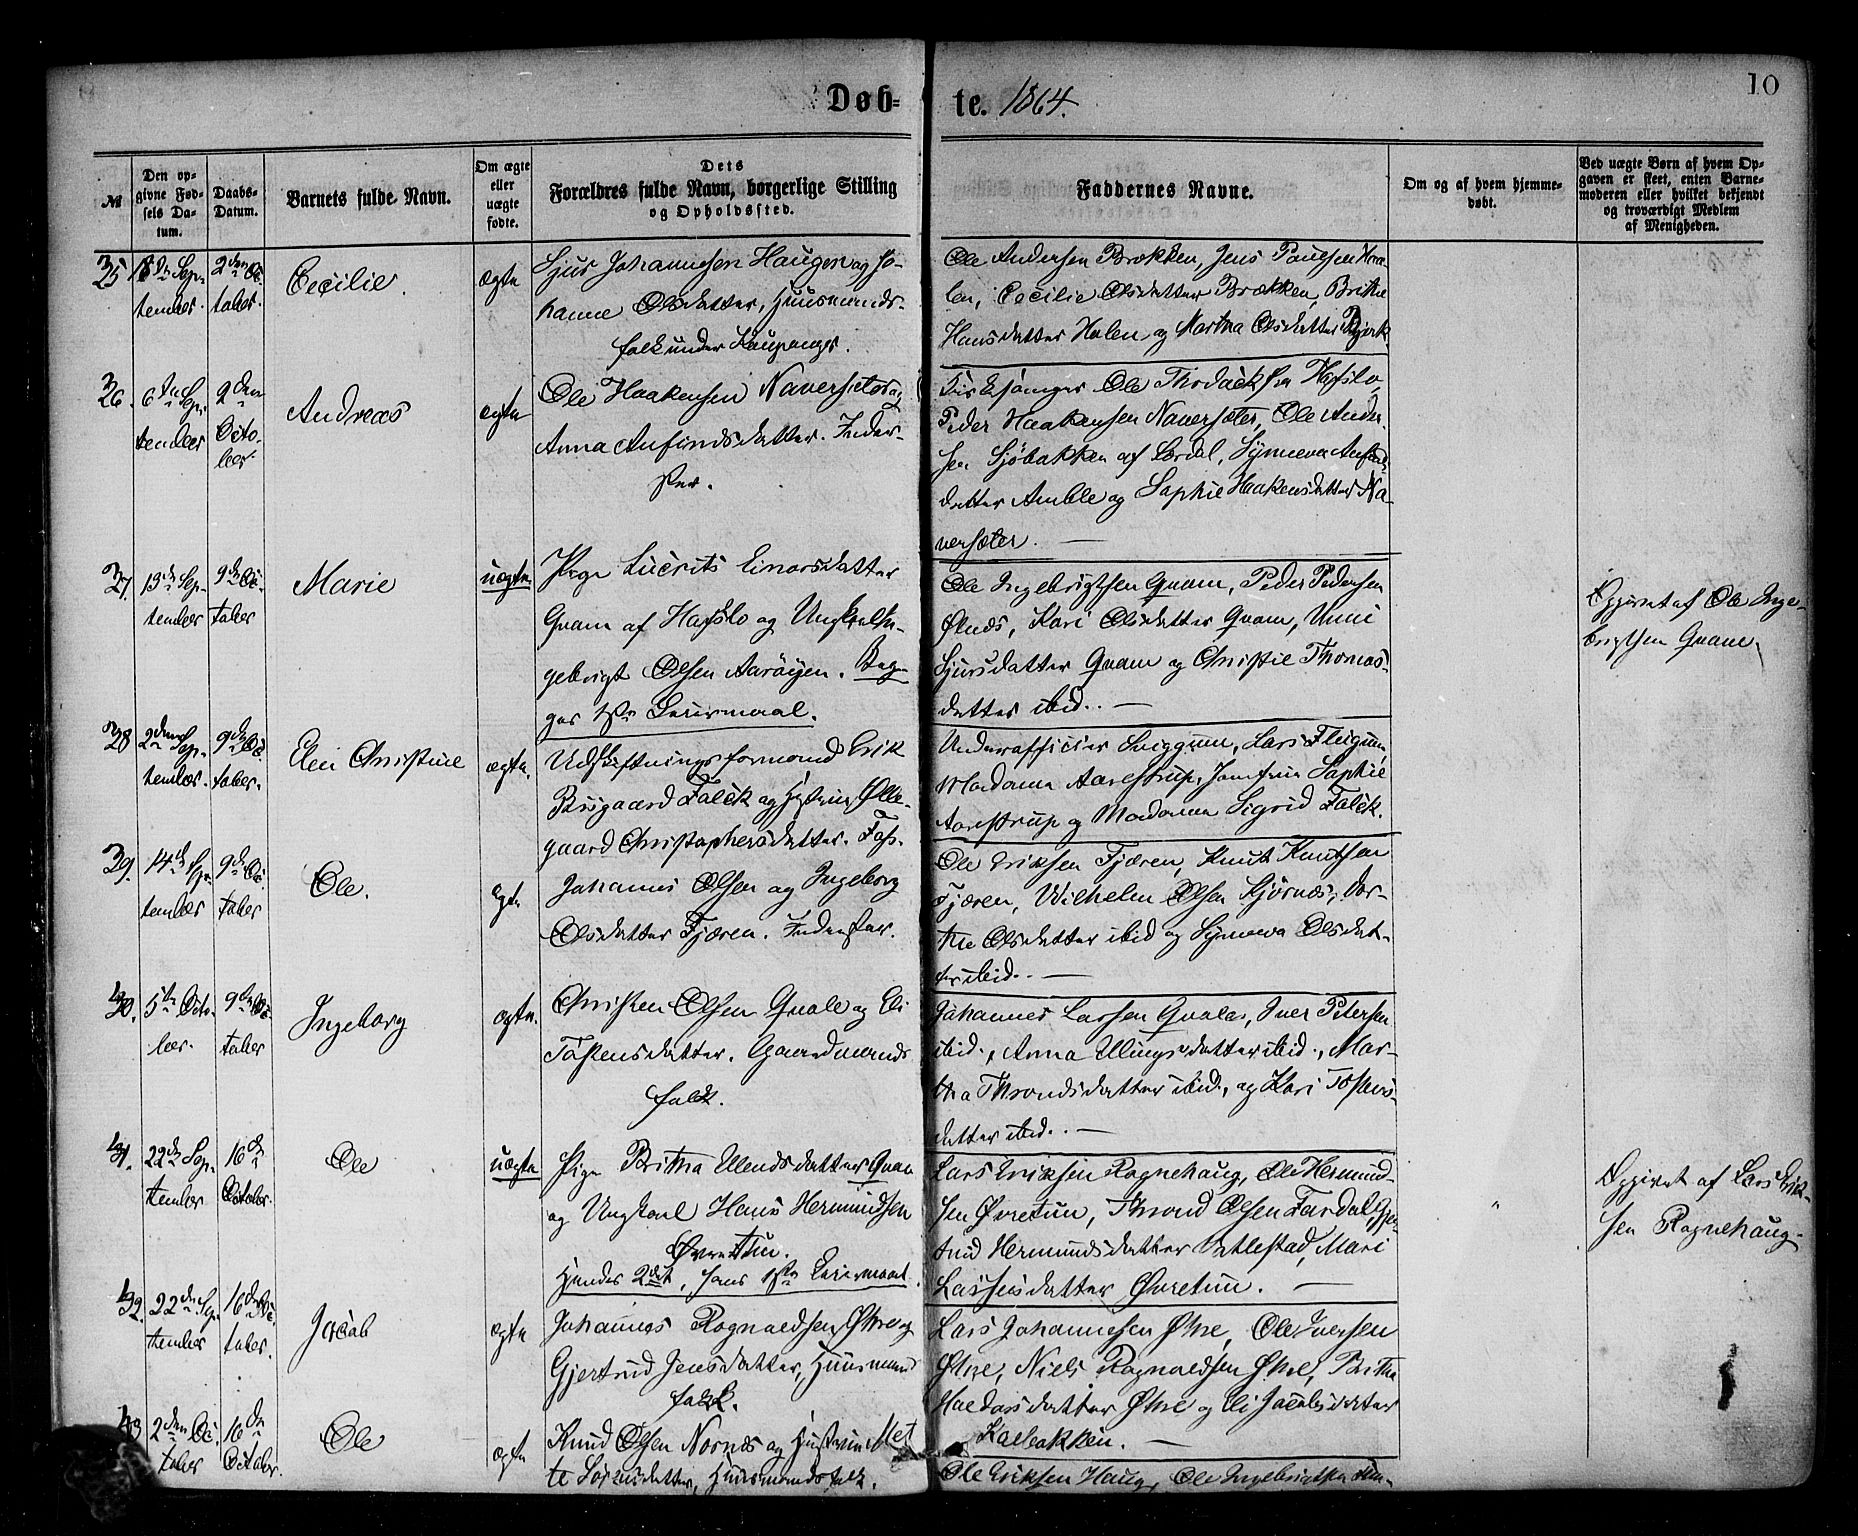 Døb-te. 1864.
10
№
Den op-
givne Fød-
sels Da-
tum.
Daabs-
Datum.
Barnets fulde Navn.
Om ægte
eller
uægte
fødte.
Dets
Forældres fulde Navn, borgerlige Stilling
og Opholdssted.
Faddernes Navne.
Om og af hvem hjemme-
døbt.
Ved uægte Børn af hvem Op-
gaven er skeet, enten Barne-
moderen eller hvilket bekjendt
og troværdigt Medlem
af Menigheden.
35 18de Sep-
tember.
2den Oc-
tober.
Cecilie.
ægte
Sjur Johannesen Haugen og Jo-
hanne Olsdatter, Huusmands-
folk under Kaupanger.
Ole Andersen Brækken, Jens Paulsen Ha-
len, Cecilie Olsdatter Brækken, Brithe
Hansdatter Halen og Martha Olsdatter Bjørk.
36. 6te Sep-
tember
2den
Octo-
ber.
Andreas
ægte
Ole Haakensen Naversæter og
Anna Anfindsdatter. Inder-
ster.
Kirkesanger Ole Hafslo,
Peder Haakensen Naversæter, Ole Ander-
sen Sjøbakken af Lærdal, Synneva Anfinds-
datter Amble og Sophie Haakensdatter Na-
versæter. —
37. 13de Sep-
tember
9de Oc-
tober
Marie
uægte
Pige Lucrits Einarsdatter
Quam af Hafslo og Ungkarl In-
gebrigt Olsen Aarøyen. Beg-
ges 1ste Leiermaal.
Ole Ingebrigtsen Quam, Peder Pedersen
Ølnæs, Kari Olsdatter Quam, Unni
Sjursdatter Quam og Christie Thomas-
datter ibid. —
Opgivet af Ole Inge-
brigtsen Quam.
38 2den Sep-
tember.
9de Oc-
tober.
Elen Christine
ægte.
Udskiftningsformand Erik
Falck og Hustru Olle-
gaard Christophersdatter. Foss.
Underofficier, Lars Flugum,
Madame Aarestrup, Jomfru Sophie
Aarestrup og Madame Sigrid Falck.
39. 14de Sep-
tember
9de Oc-
tober
Ole.
ægte
Johannes Olsen og Ingeborg
Olsdatter Fjæren. Inderster.
Ole Eriksen Fjæren, Knut Knutsen
Fjæren, Wilhelm Olsen Stjørnæs, Dor-
the Olsdatter ibid og Synneva Olsdat-
ter ibid. —
40. 5te Octo-
ber.
9de Oc-
tober
Ingeborg
ægte.
Christen Olsen Quale og Eli
Tostensdatter. Gaardmands-
folk.
Johannes Larsen Quale, Iver Petersen
ibid., Anna Ellingsdatter ibid., Mar-
tha Throndsdatter ibid., og Kari Tostens-
datter ibid. —
41. 22de Sep-
tember
16de
October.
Ole
uægte
Pige Britha Ellendsdatter Quam
og Ungkarl Hans Hermundsen
Øvretun.
Hendes 2det, hans 1ste Leiermaal.
Lars Eriksen Rognehaug, Ole Hermund-
sen Øvretun, Thrond Olsen Fardal, Gjer-
trud Hermundsdatter Vatlestad, Mari
Lassesdatter Øvretun. —
Opgivet af Lars Erik-
sen Rognehaug.
42. 22de Sep-
tember
16de Oc-
tober.
Jacob
ægte
Johannes Rognaldsen Øhre og
Gjertrud Jensdatter, Huusmand-
folk.
Lars Johannesen Øhre, Ole Iversen
Øhre, Niels Rognaldsen Øhre, Britha
Haldorsdatter Øhre og Eli Jacobsdatter
Kalbakken. —
43 2den Oc-
tober
16de
October.
Ole
ægte
Knud Olsen Nornæs og Hustru Met-
te Sørensdatter, Huusmandsfolk.
Ole Eriksen Haug, Ole Ingebrigtsen